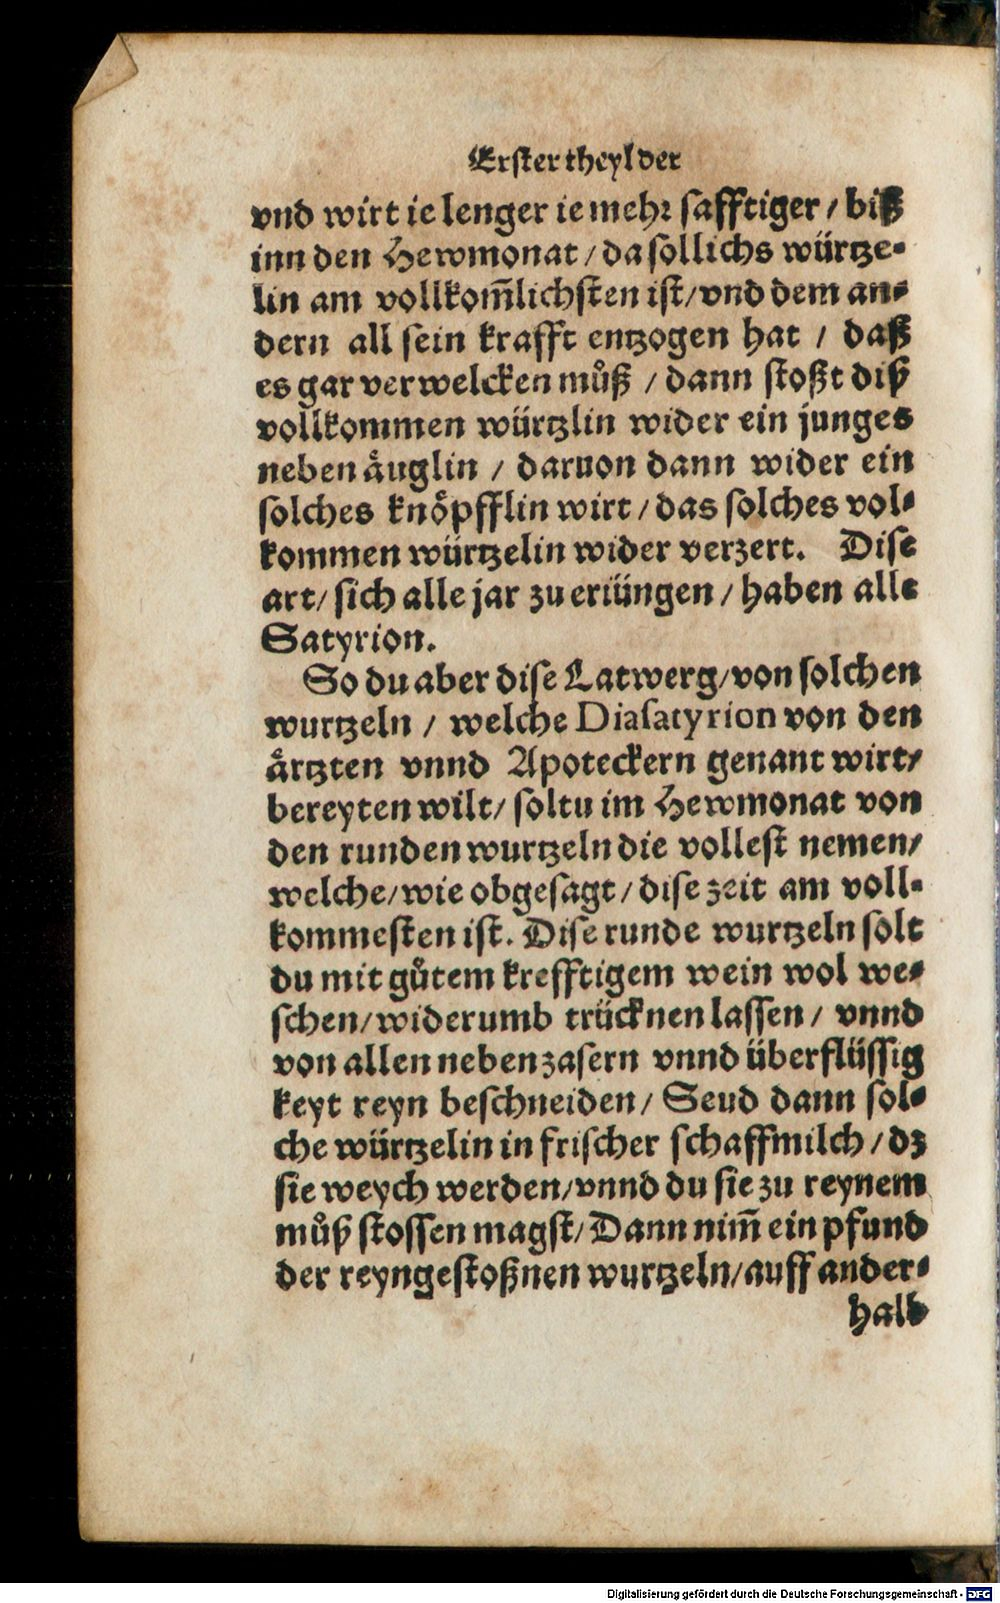 Erster theyl der
vnd wirt ie lenger ie mehr safftiger / biß
inn den Hewmonat / da sollichs würtze-
lin am vollkom̃lichsten ist / vnd dem an-
dern all sein krafft entzogen hat / daß
es gar verwelcken můß / dann stoßt diß
vollkommen würtzlin wider ein junges
neben äuglin / daruon dann wider ein
solches knöpfflin wirt / das solches vol-
kommen würtzelin wider verzert. Dise
art / sich alle jar zu eriüngen / haben alle
Satyrion.
So du aber dise Latwerg / von solchen
wurtzeln / welche Diasatyrion von den
ärtzten vnnd Apoteckern genant wirt /
bereyten wilt / soltu im Hewmonat von
den runden wurtzeln die vollest nemen /
welche / wie obgesagt / dise zeit am voll-
kommesten ist. Dise runde wurtzeln solt
du mit gůtem krefftigem wein wol we-
schen / widerumb trücknen lassen / vnnd
von allen neben zasern vnnd überflüssig
keyt reyn beschneiden / Seud dann sol-
che würtzelin in frischer schaffmilch / dz
sie weych werden / vnnd du sie zu reynem
můß stossen magst / Dann nim̃ ein pfund
der reyngestoßnen wurtzeln / auff ander-
halb
Digitalisierung gefördert durch die Deutsche Forschungsgemeinschaft - DFG